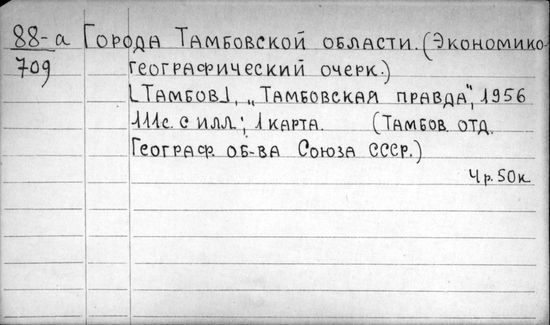 88-а Города Тамбовской области. (Экономико-
709 географический очерк.)
[Тамбов], „Тамбовская правда", 1956
111с. с илл.; 1 карта. (Тамбов. отд.
Географ. об-ва Союза ССР.)
4р.50к